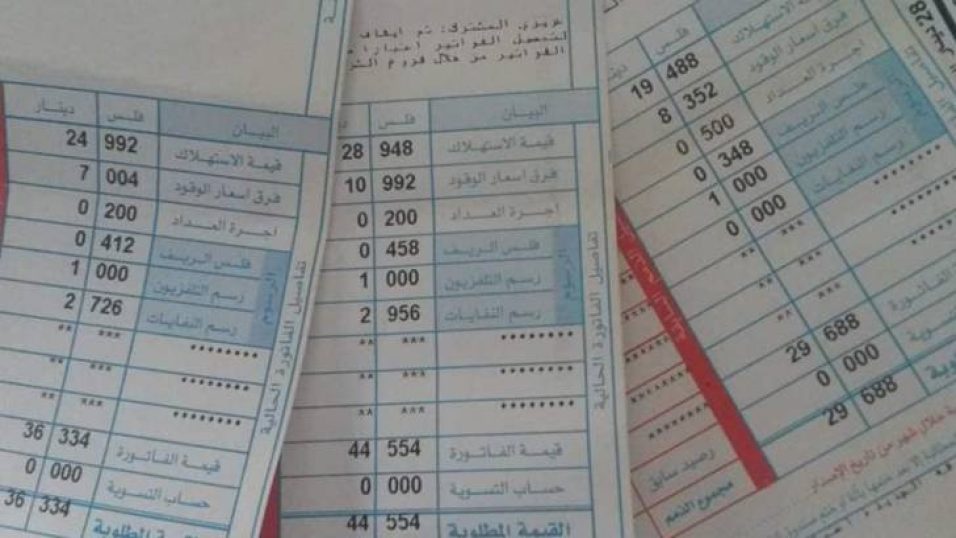 دينار فلس البيان
24 992 قيمة الاستهلاك
7 004 فرق اسعار الوقود
0 200 اجرة العداد
0 412 فلس الريف
1 000 رسم التلفزيون
2 726 رسم النفايات
الرسوم
** *** ********
** *** ********
** *** ********
36 334 قيمة الفاتورة
0 000 حساب التسوية
36 334 القيمة المطلوبة
تفاصيل الفاتورة الحالية
عزيزي المشترك: تم ايقاف
الفواتير من خلال
فلس البيان
28 948 قيمة الاستهلاك
10 992 فرق اسعار الوقود
0 200 اجرة العداد
0 458 فلس الريف
1 000 رسم التلفزيون
2 956 رسم النفايات
الرسوم
** *** ********
** *** ********
** *** ********
44 554 قيمة الفاتورة
0 000 حساب التسوية
44 554 القيمة المطلوبة
تفاصيل الفاتورة الحالية
28
فلس
19 488 الاستهلاك
8 352 فرق اسعار الوقود
0 500 اجرة العداد
0 348 فلس الريف
1 000 رسم التلفزيون
0 000 رسم النفايات
** *** ********
** *** ********
** *** ********
29 688 الفاتورة
0 000
29 688
رصيد سابق
مجموع الذمم
خلال شهر من تاريخ الإصدار